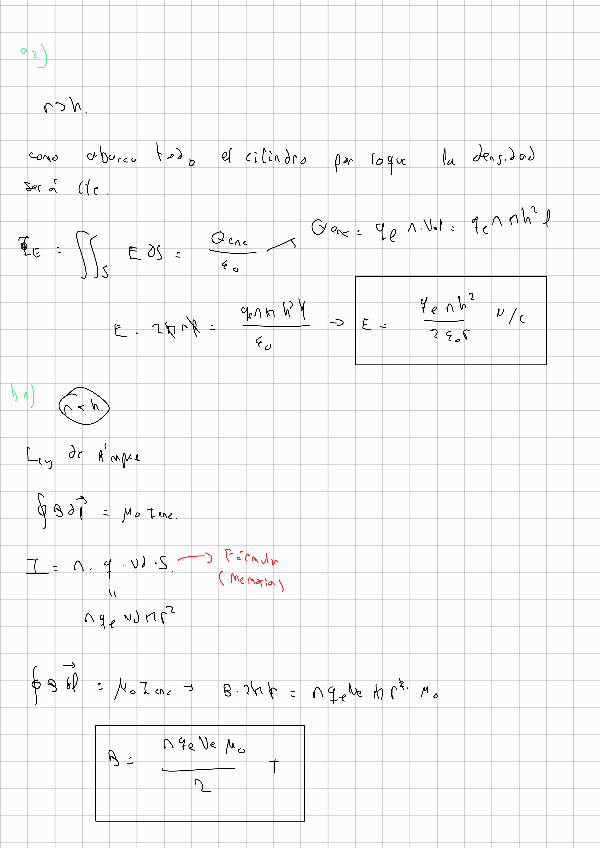 a2)
r>h.
como abarca todo el cilindro por loque la densidad
será cte.
Φ_E = ∬_S E ∂S = Q_enc / ε_0
Q_enc = q_e n · Vol = q_e n π h² l
E · 2π r l = q_e n π h² l / ε_0 → E = q_e n h² / 2 ε_0 r N/C
b1)
r < h.
Ley de Ampere
∮ B ∂l = μ_0 I enc.
I = n · q · vd · S. → Fórmula
(Memoria)
"
n q_e vd π r²
∮ B ∂l = μ_0 I enc → B · 2π r = n q_e v_e π r² · μ_0
B = n q_e v_e μ_0 / 2 T